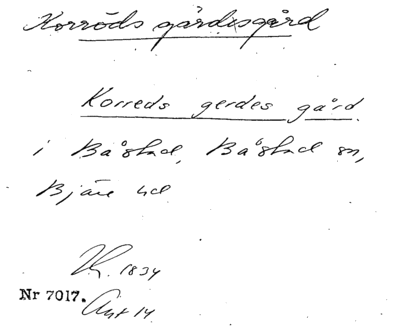 Korröds gärdesgård
Korreds gerdes gård
i Båstad, Båstad sn,
Bjäre hd
1834
Nr 7017.
14